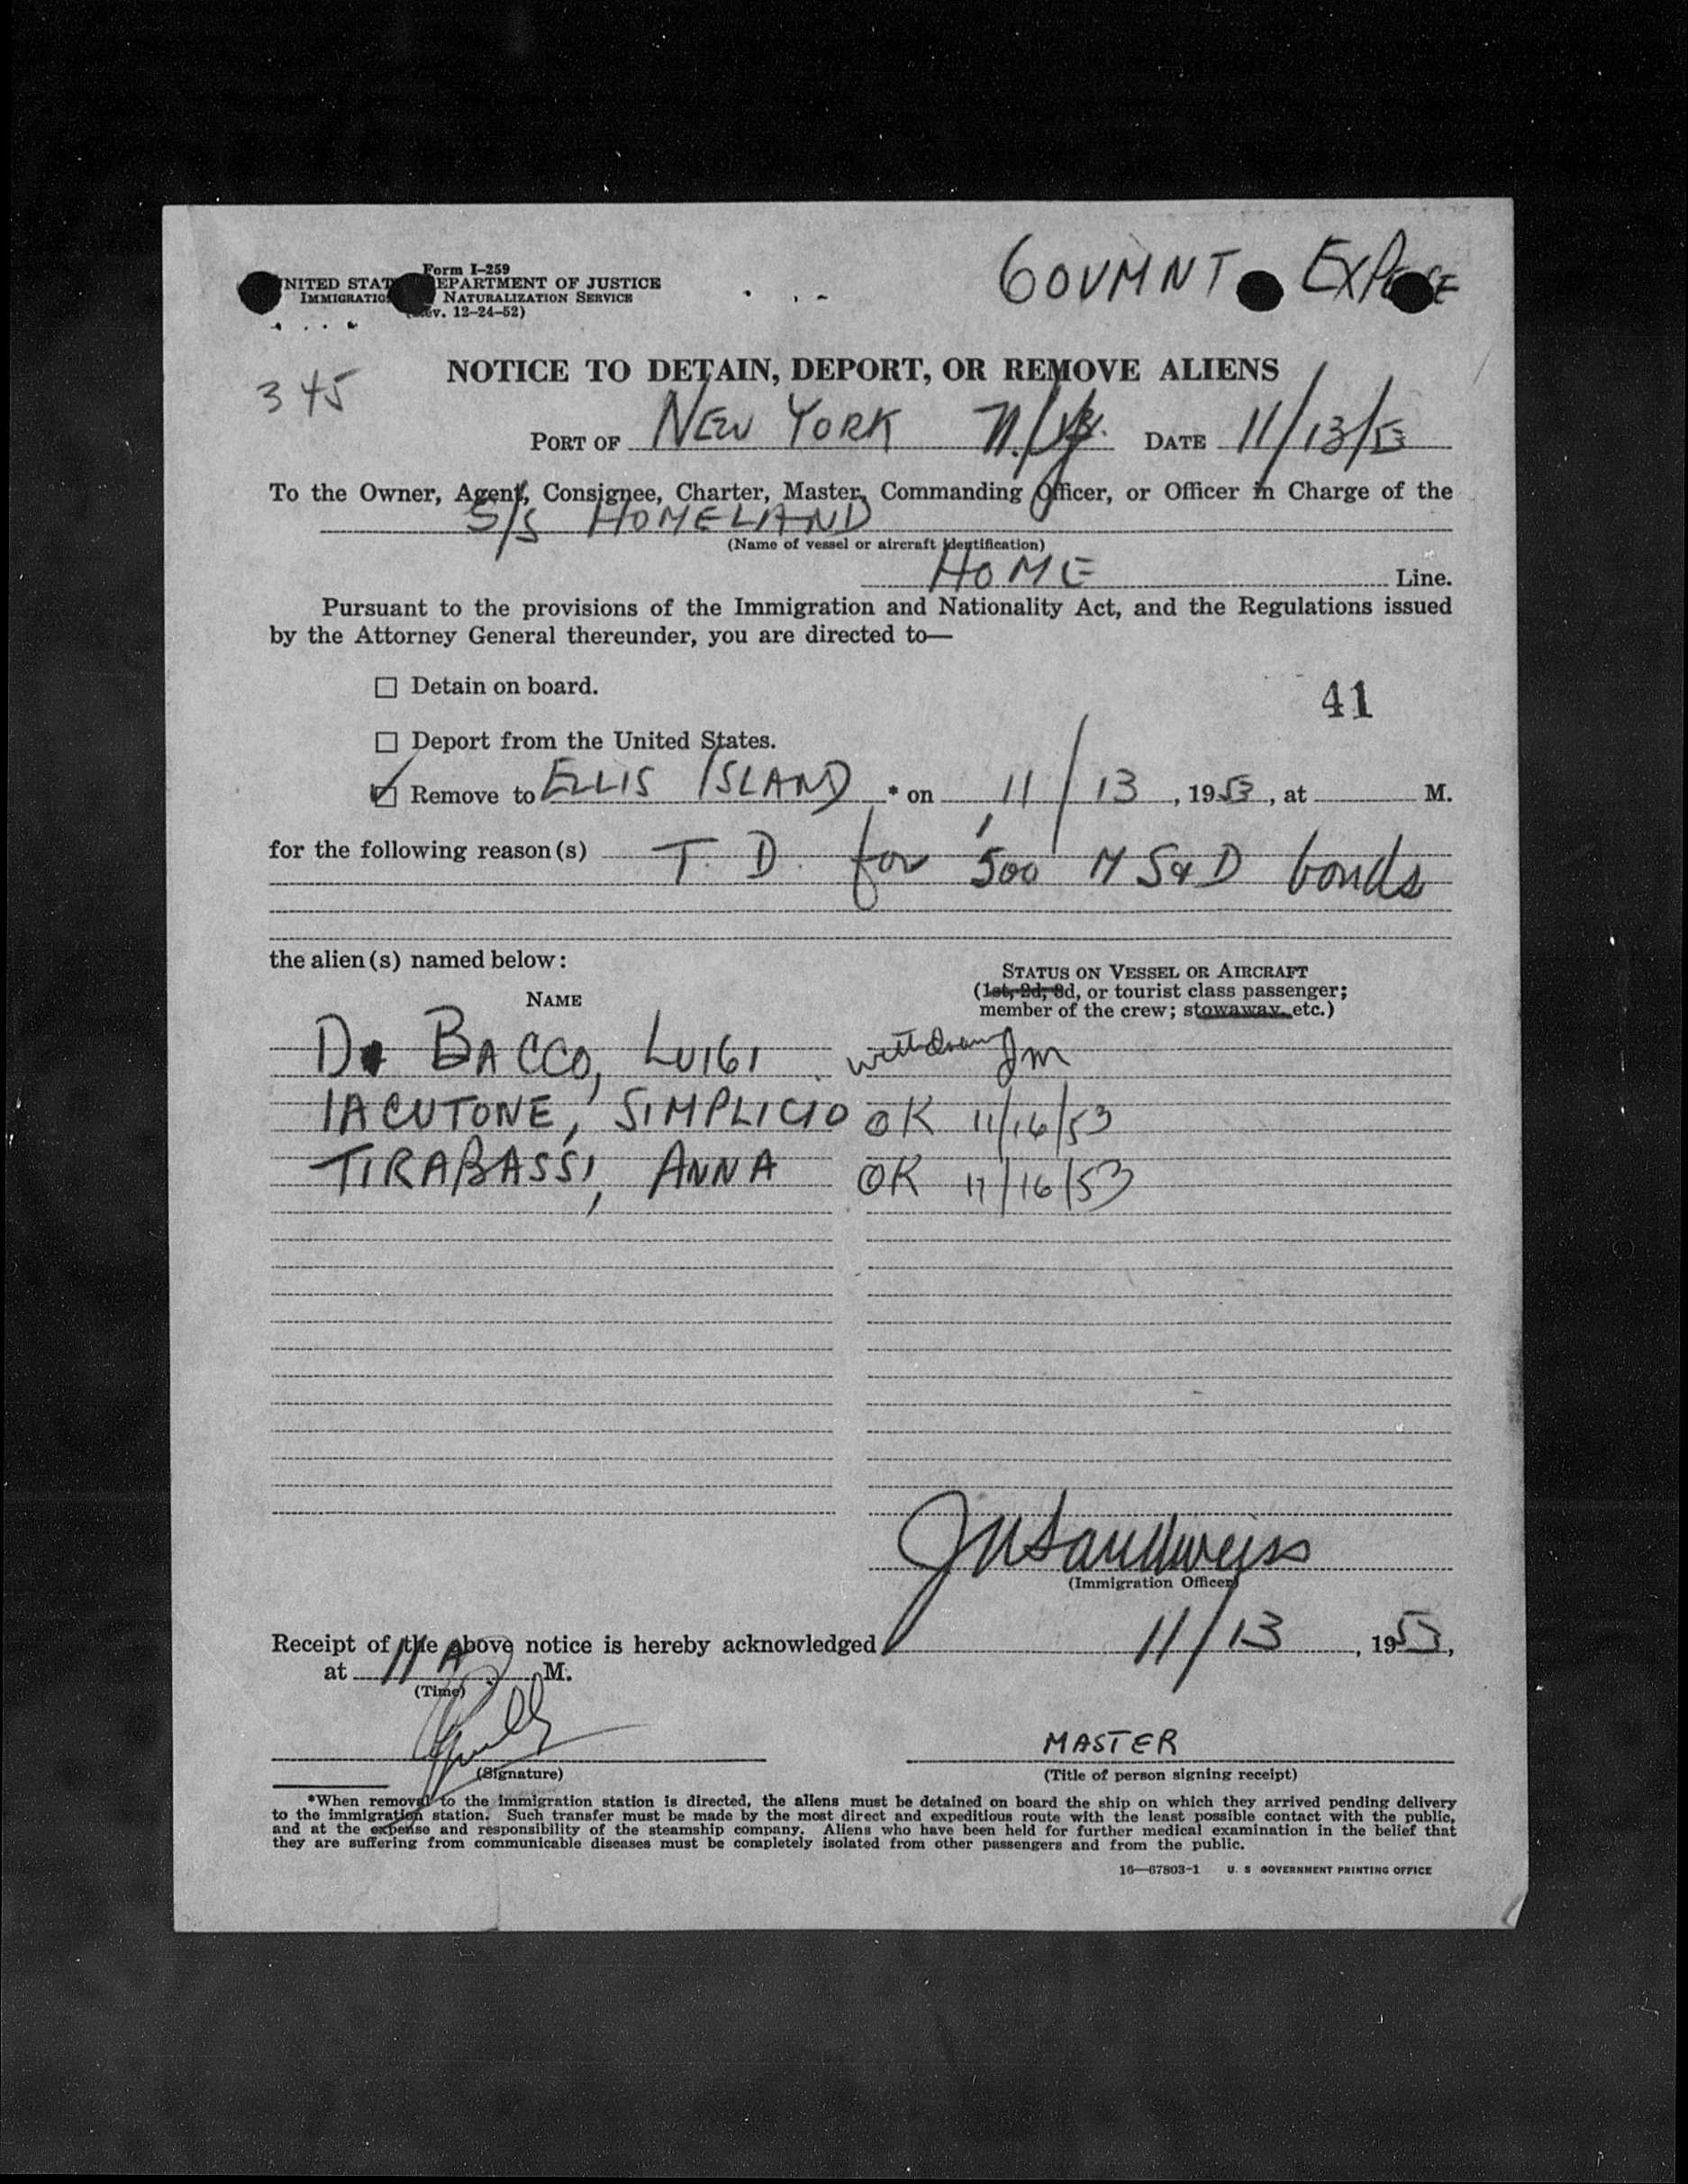 Form I-259
UNITED STATES DEPARTMENT OF JUSTICE
IMMIGRATION NATURALIZATION SERVICE
(Rev. 12-24-52)
GOVMNT EXPENSE
345
NOTICE TO DETAIN, DEPORT, OR REMOVE ALIENS
PORT OF NEW YORK N.Y. DATE 11/13/53
To the Owner, Agent, Consignee, Charter, Master, Commanding Officer, or Officer in Charge of the
S/S HOMELAND
(Name of vessel or aircraft identification)
HOME Line.
Pursuant to the provisions of the Immigration and Nationality Act, and the Regulations issued
by the Attorney General thereunder, you are directed to—
☐ Detain on board.
41
☐ Deport from the United States.
☑ Remove to ELLIS ISLAND * on 11/13, 1953, at M.
for the following reason(s) T. D. for 500 M S&D bonds
the alien(s) named below:
STATUS ON VESSEL OR AIRCRAFT
NAME
(1st, 2d, 3d, or tourist class passenger;
member of the crew; stowaway, etc.)
DI BACCO, LUIGI withdrawn JM
IACUTONE, SIMPLICIO OK 11/16/53
TIRABASSI, ANNA OK 11/16/53
JM Sandweiss
(Immigration Officer)
Receipt of the above notice is hereby acknowledged 11/13, 1953,
at 11 A M.
(Time)
MASTER
(Signature)
(Title of person signing receipt)
*When removal to the immigration station is directed, the aliens must be detained on board the ship on which they arrived pending delivery
to the immigration station. Such transfer must be made by the most direct and expeditious route with the least possible contact with the public,
and at the expense and responsibility of the steamship company. Aliens who have been held for further medical examination in the belief that
they are suffering from communicable diseases must be completely isolated from other passengers and from the public.
16—67803-1 U. S GOVERNMENT PRINTING OFFICE